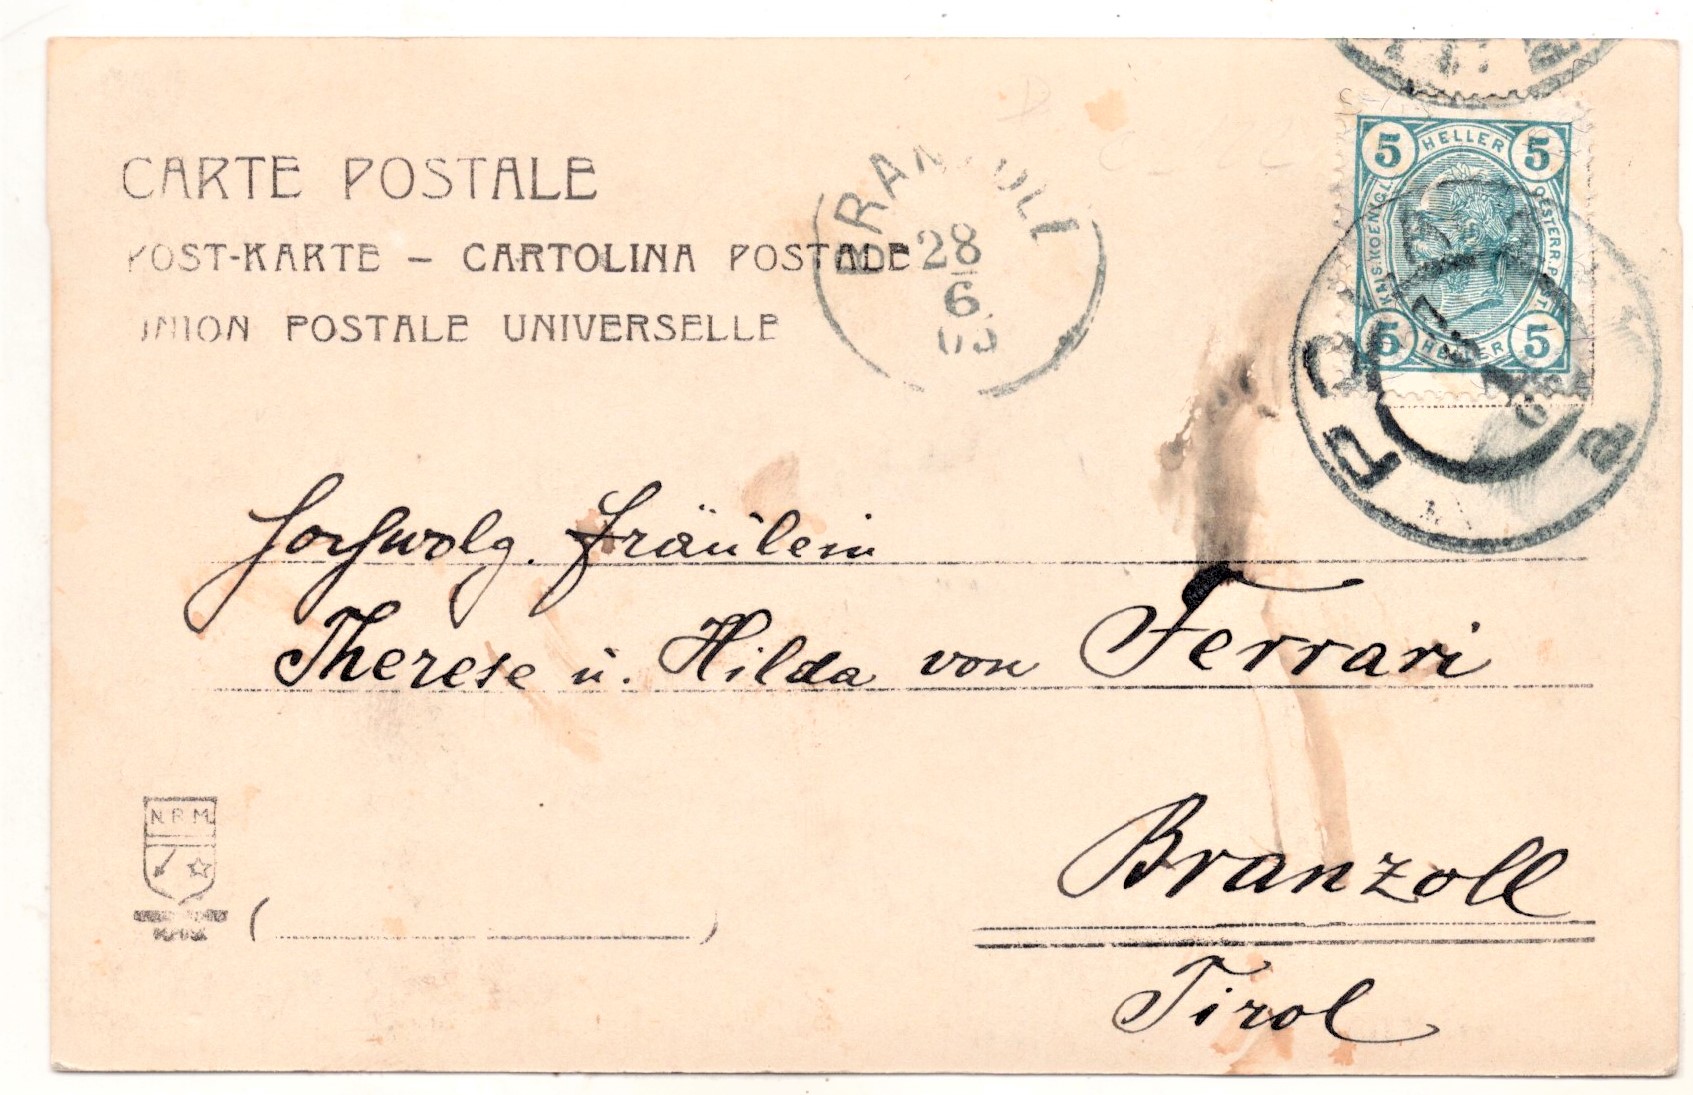 CARTE POSTALE
POST-KARTE – CARTOLINA POSTALE
UNION POSTALE UNIVERSELLE
BRANZOLL
28
6
05
5 HELLER 5
KAIS. KOENIGL. OESTERR. POST.
5 HELLER 5
Hochwolg. Fräulein
Therese u. Hilda von Ferrari
Branzoll
Tirol
N.P.M.